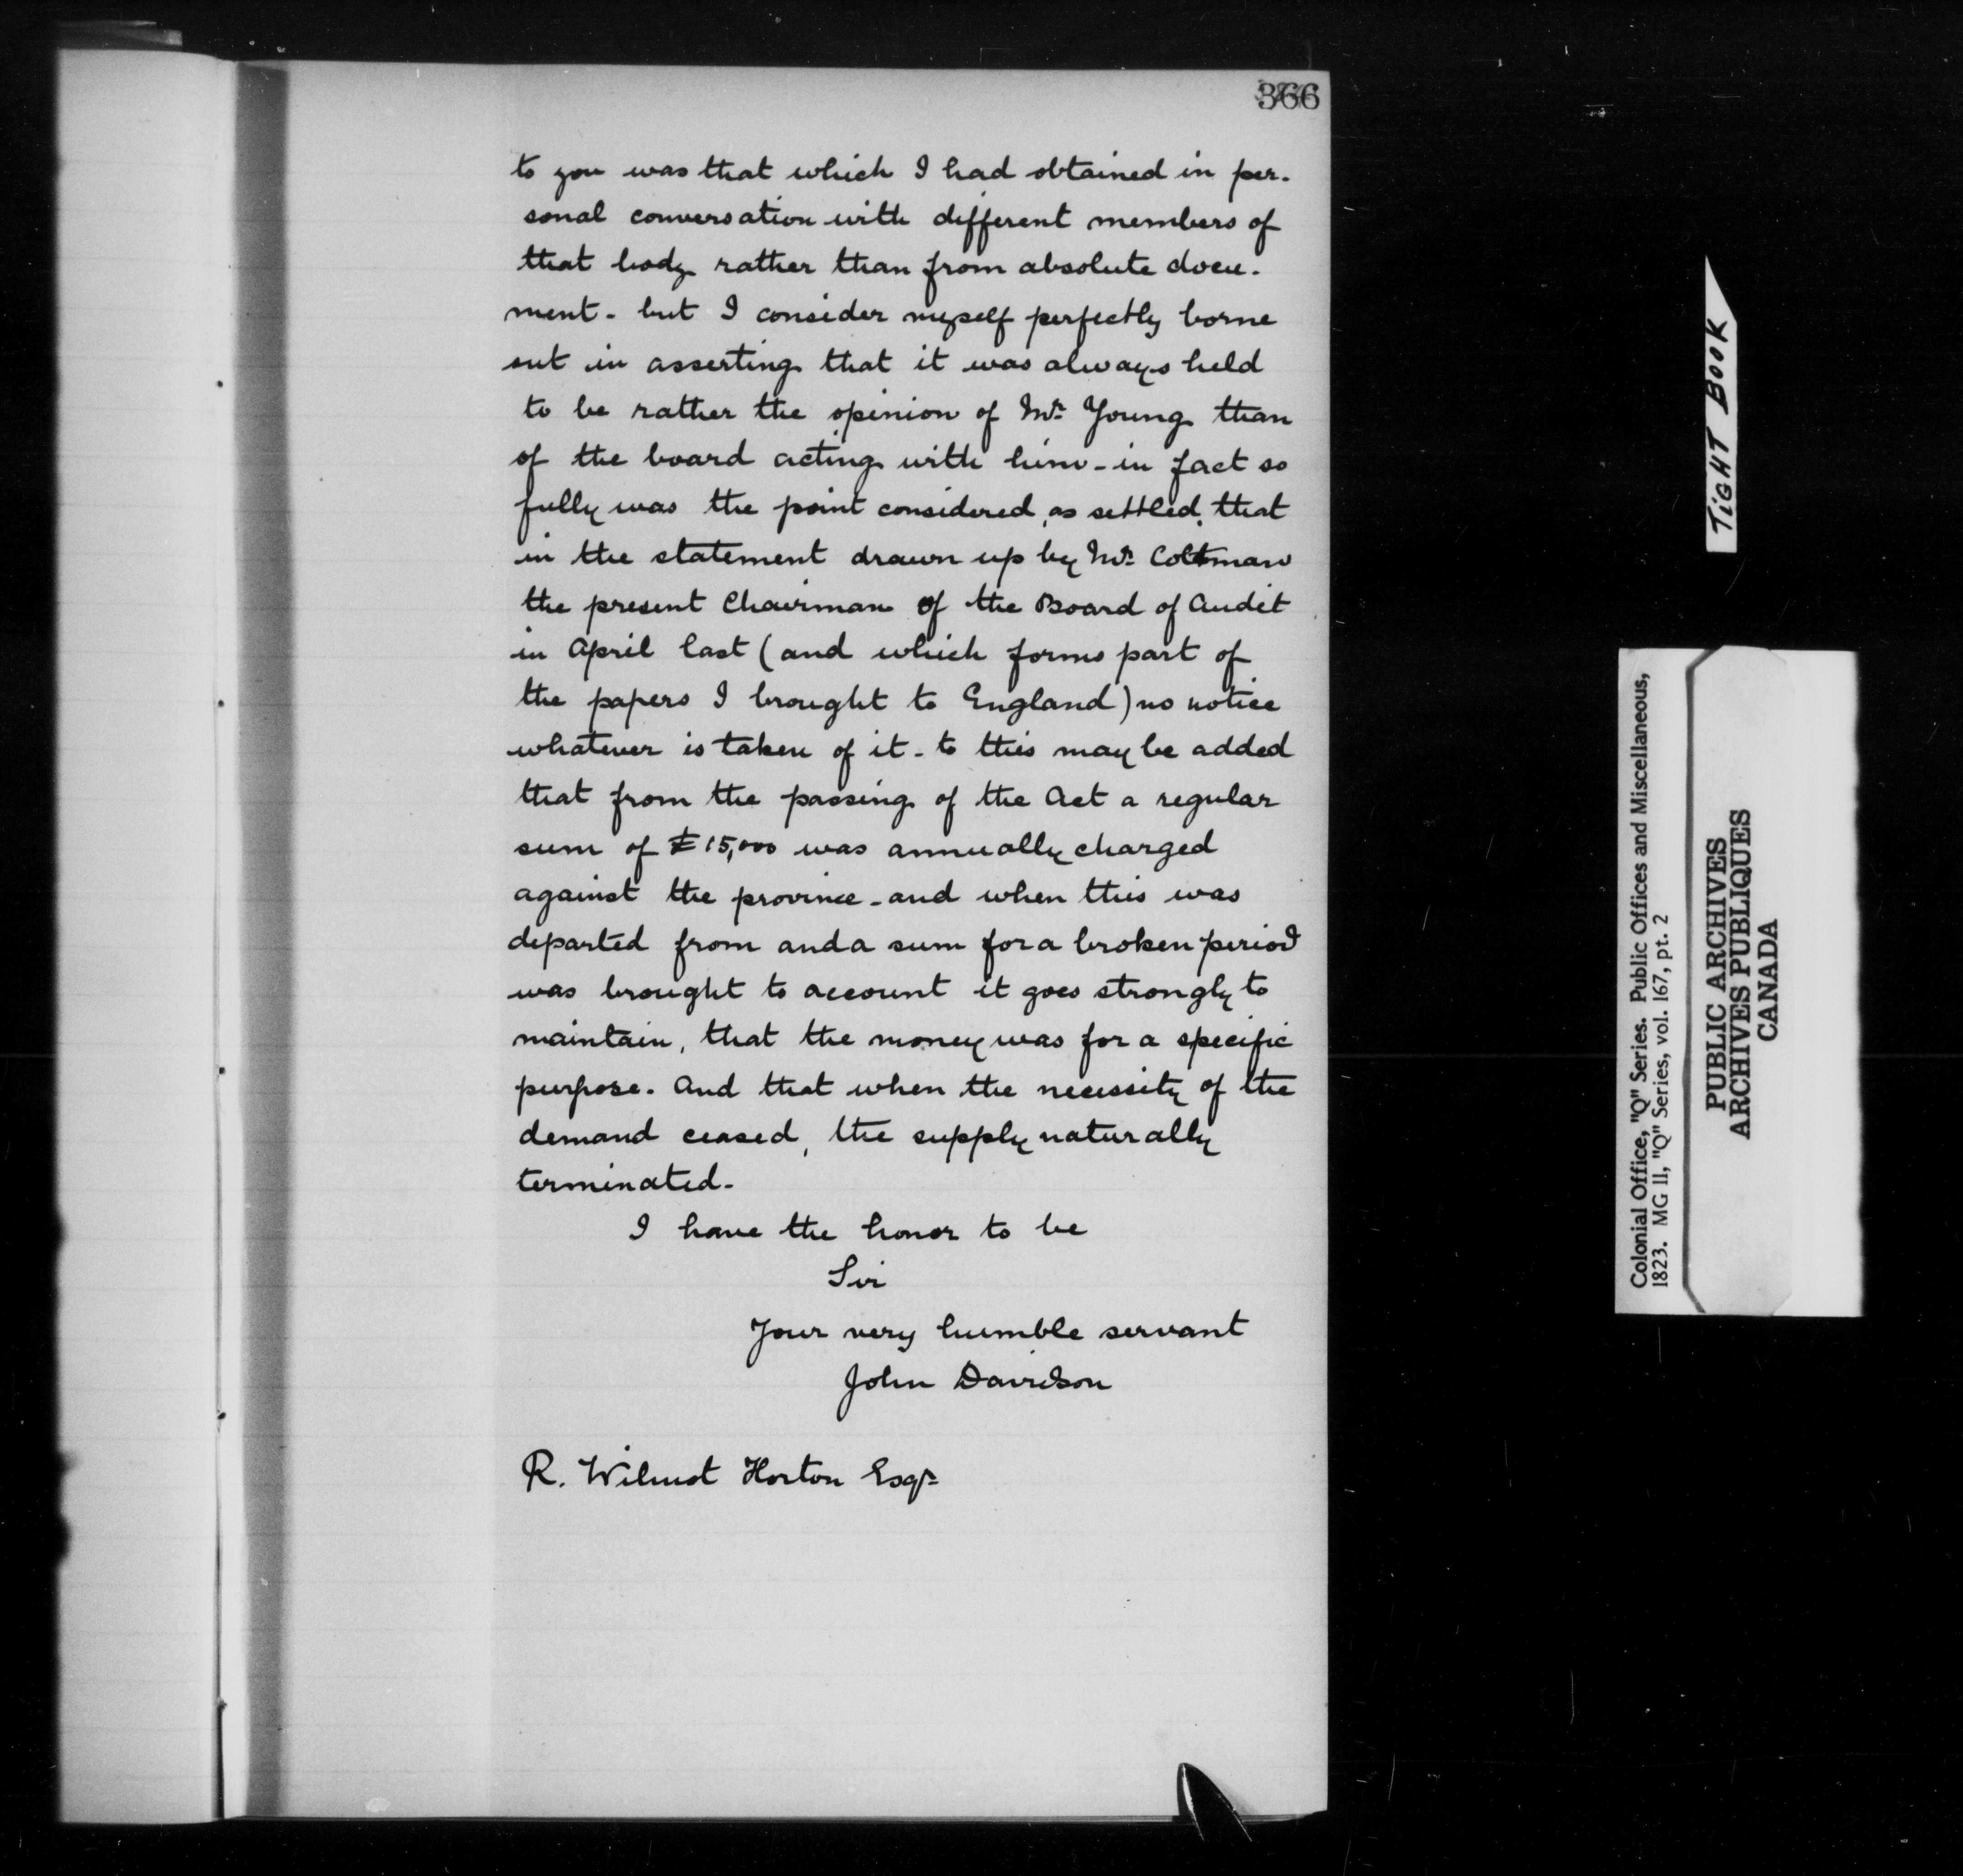 366
to you was that which I had obtained in per-
sonal conversation with different members of
that body rather than from absolute docu-
ment - but I consider myself perfectly borne
out in asserting that it was always held
to be rather the opinion of Mr. Young than
of the board acting with him - in fact so
fully was the point considered, as settled, that
in the statement drawn up by Mr. Coltman
the present Chairman of the Board of Audit
in April last (and which forms part of
the papers I brought to England) no notice
whatever is taken of it - to this may be added
that from the passing of the Act a regular
sum of £15,000 was annually charged
against the province - and when this was
departed from and a sum for a broken period
was brought to account it goes strongly to
maintain, that the money was for a specific
purpose. And that when the necessity of the
demand ceased, the supply naturally
terminated.
I have the honor to be
Sir
Your very humble servant
John Davidson
R. Wilmot Horton Esqr
TIGHT BOOK
Colonial Office, "Q" Series. Public Offices and Miscellaneous,
1823. MG 11, "Q" Series, vol. 167, pt. 2
PUBLIC ARCHIVES
ARCHIVES PUBLIQUES
CANADA